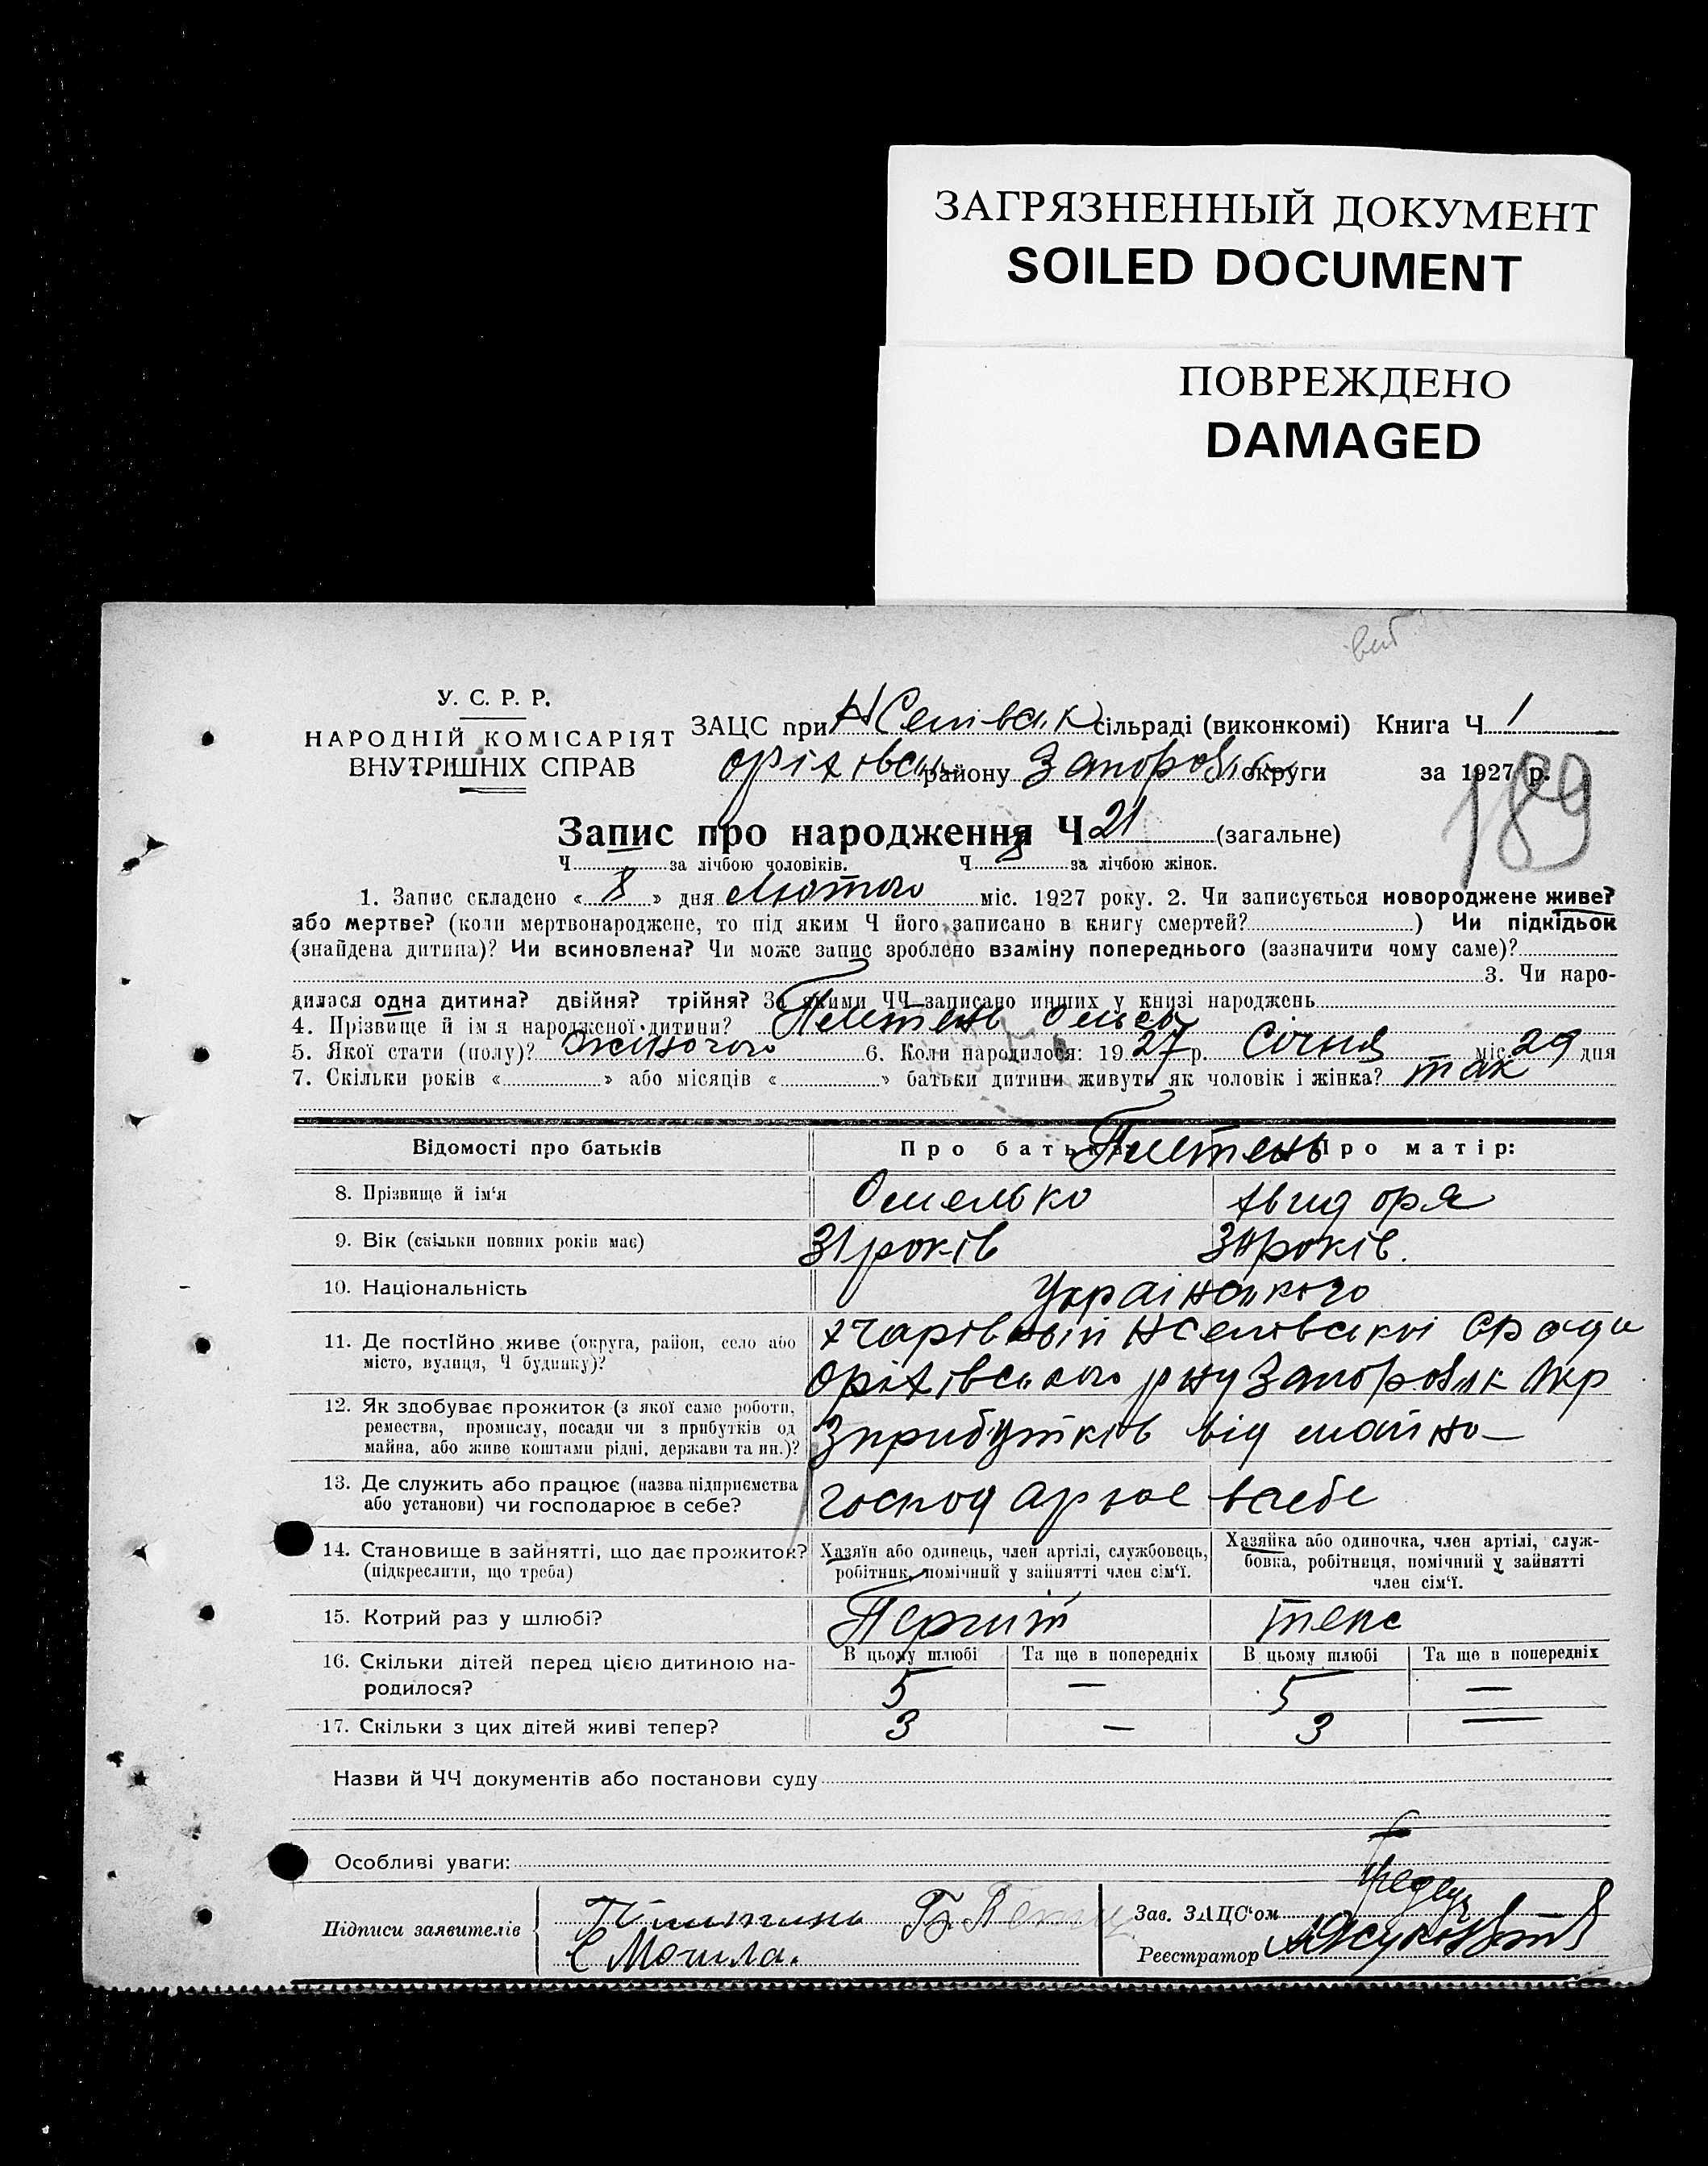 ЗАГРЯЗНЕННЫЙ ДОКУМЕНТ
SOILED DOCUMENT
ПОВРЕЖДЕНО
DAMAGED
У. С. Р. Р.
НАРОДНІЙ КОМІСАРІЯТ
ВНУТРІШНІХ СПРАВ
ЗАЦС при сільраді (виконкомі) Книга Ч 1
району округи за 1927 р.
189
Запис про народження Ч 21 (загальне)
Ч за лічбою чоловіків. Ч за лічбою жінок.
1. Запис складено « 8 » дня Лютого міс. 1927 року. 2. Чи записується новороджене живе?
або мертве? (коли мертвонароджене, то під яким Ч його записано в книгу смертей? ) Чи підкідьок
(знайдена дитина)? Чи всиновлена? Чи може запис зроблено взаміну попереднього (зазначити чому саме)?
3. Чи наро-
дилася одна дитина? двійня? трійня? За якими ЧЧ записано инших у книзі народжень
4. Прізвище й ім я народженої дитини?
5. Якої стати (полу)? Жіночого 6. Коли народилося: 19 27 р. Січня міс. 29 дня
7. Скільки років « » або місяців « » батьки дитини живуть як чоловік і жінка? так
Відомості про батьків Про батька Про матір:
8. Прізвище й ім'я Омелько
9. Вік (скільки повних років має) 31 років років.
10. Національність Українського
11. Де постійно живе (округа, район, село або
місто, вулиця, Ч будинку)?
12. Як здобуває прожиток (з якої саме роботи,
ремества, промислу, посади чи з прибутків од
майна, або живе коштами рідні, держави та ин.)? З прибутків від майно
13. Де служить або працює (назва підприємства
або установи) чи господарює в себе? господарює в себе
14. Становище в зайнятті, що дає прожиток?
(підкреслити, що треба)
Хазяїн або одинець, член артілі, службовець,
робітник, помічний у зайнятті член сім'ї.
Хазяйка або одиночка, член артілі, служ-
бовка, робітниця, помічний у зайнятті
член сім'ї.
15. Котрий раз у шлюбі? теж
16. Скільки дітей перед цією дитиною на-
родилося?
В цьому шлюбі Та ще в попередніх В цьому шлюбі Та ще в попередніх
5 — 5 —
17. Скільки з цих дітей живі тепер? 3 — 3 —
Назви й ЧЧ документів або постанови суду
Особливі уваги:
Підписи заявителів
Є Могила.
Зав. ЗАЦС'ом
Реєстратор